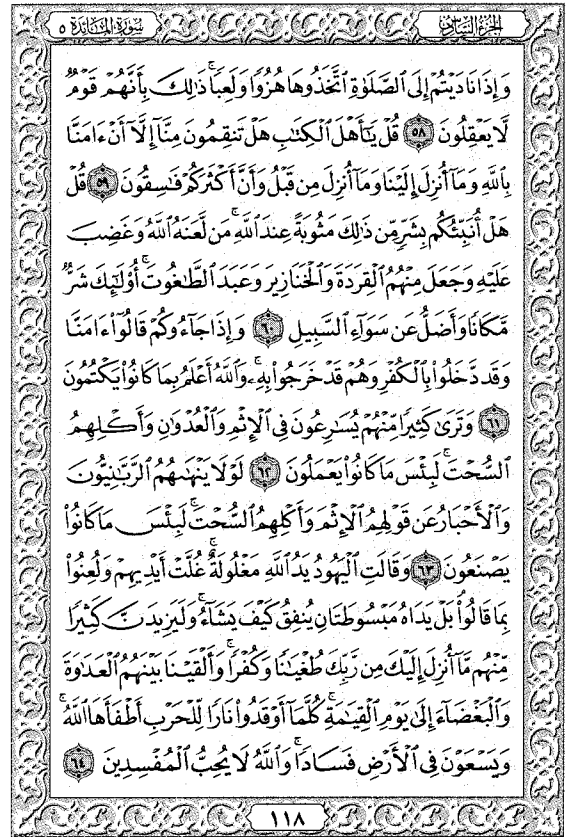 سُورَةُ المَائِدَة ٥
الجُزْءُ السَّادِسُ
وَإِذَا نَادَيْتُمْ إِلَى ٱلصَّلَوٰةِ ٱتَّخَذُوهَا هُزُوًا وَلَعِبًا ۚ ذَٰلِكَ بِأَنَّهُمْ قَوْمٌ
لَّا يَعْقِلُونَ ٥٨ قُلْ يَٰٓأَهْلَ ٱلْكِتَٰبِ هَلْ تَنقِمُونَ مِنَّآ إِلَّآ أَنْ ءَامَنَّا
بِٱللَّهِ وَمَآ أُنزِلَ إِلَيْنَا وَمَآ أُنزِلَ مِن قَبْلُ وَأَنَّ أَكْثَرَكُمْ فَٰسِقُونَ ٥٩ قُلْ
هَلْ أُنَبِّئُكُم بِشَرٍّ مِّن ذَٰلِكَ مَثُوبَةً عِندَ ٱللَّهِ ۚ مَن لَّعَنَهُ ٱللَّهُ وَغَضِبَ
عَلَيْهِ وَجَعَلَ مِنْهُمُ ٱلْقِرَدَةَ وَٱلْخَنَازِيرَ وَعَبَدَ ٱلطَّٰغُوتَ ۚ أُو۟لَٰٓئِكَ شَرٌّ
مَّكَانًا وَأَضَلُّ عَن سَوَآءِ ٱلسَّبِيلِ ٦٠ وَإِذَا جَآءُوكُمْ قَالُوٓا۟ ءَامَنَّا
وَقَد دَّخَلُوا۟ بِٱلْكُفْرِ وَهُمْ قَدْ خَرَجُوا۟ بِهِۦ ۚ وَٱللَّهُ أَعْلَمُ بِمَا كَانُوا۟ يَكْتُمُونَ
٦١ وَتَرَىٰ كَثِيرًا مِّنْهُمْ يُسَٰرِعُونَ فِى ٱلْإِثْمِ وَٱلْعُدْوَٰنِ وَأَكْلِهِمُ
ٱلسُّحْتَ ۚ لَبِئْسَ مَا كَانُوا۟ يَعْمَلُونَ ٦٢ لَوْلَا يَنْهَىٰهُمُ ٱلرَّبَّٰنِيُّونَ
وَٱلْأَحْبَارُ عَن قَوْلِهِمُ ٱلْإِثْمَ وَأَكْلِهِمُ ٱلسُّحْتَ ۚ لَبِئْسَ مَا كَانُوا۟
يَصْنَعُونَ ٦٣ وَقَالَتِ ٱلْيَهُودُ يَدُ ٱللَّهِ مَغْلُولَةٌ ۚ غُلَّتْ أَيْدِيهِمْ وَلُعِنُوا۟
بِمَا قَالُوا۟ ۘ بَلْ يَدَاهُ مَبْسُوطَتَانِ يُنفِقُ كَيْفَ يَشَآءُ ۚ وَلَيَزِيدَنَّ كَثِيرًا
مِّنْهُم مَّآ أُنزِلَ إِلَيْكَ مِن رَّبِّكَ طُغْيَٰنًا وَكُفْرًا ۚ وَأَلْقَيْنَا بَيْنَهُمُ ٱلْعَدَٰوَةَ
وَٱلْبَغْضَآءَ إِلَىٰ يَوْمِ ٱلْقِيَٰمَةِ ۚ كُلَّمَآ أَوْقَدُوا۟ نَارًا لِّلْحَرْبِ أَطْفَأَهَا ٱللَّهُ ۚ
وَيَسْعَوْنَ فِى ٱلْأَرْضِ فَسَادًا ۚ وَٱللَّهُ لَا يُحِبُّ ٱلْمُفْسِدِينَ ٦٤
١١٨